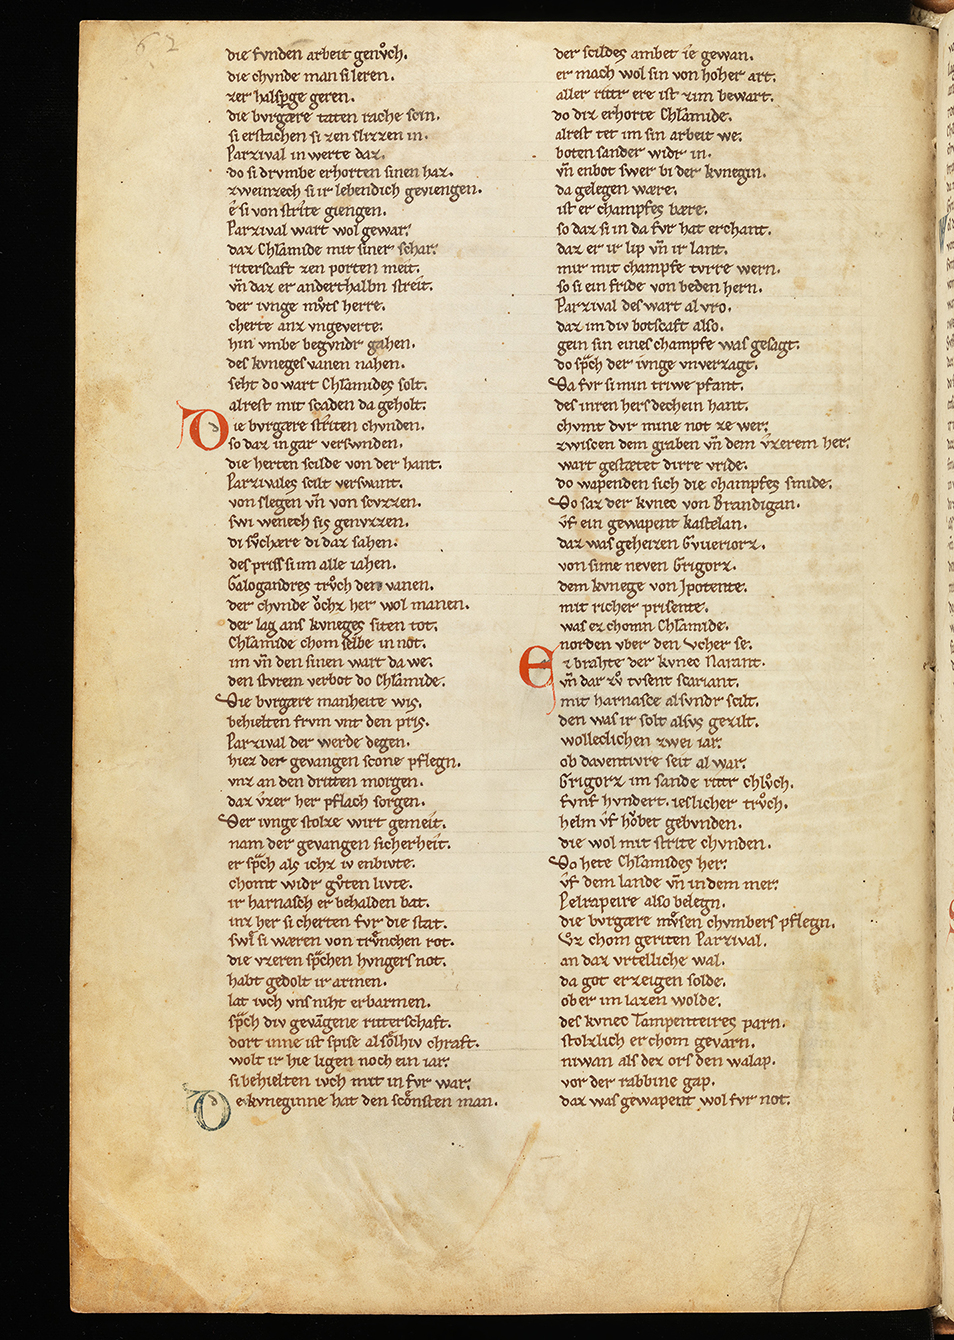 62
die fvnden arbeit genvͦch.
die chvnde man si leren.
zer halsperge geren.
die bvrgære taten rache scin.
si erstachen si zen slizzen in.
Parzival in werte daz.
do si drvmbe erhorten sinen haz.
zweinzech si ir lebendich geviengen.
é si von strite giengen.
Parzival wart wol gewar.
daz Chlamide mit siner schar.
riterscaft zen porten meit.
vn̄ daz er anderthalbn streit.
der ivnge mvͦts herre.
cherte anz vngeverte.
hin vmbe begvndr gahen.
des kvneges vanen nahen.
seht do wart Chlamides solt.
alrest mit scaden da geholt.
Die bvrgære striten chvnden.
so daz in gar verswnden.
die herten scilde von der hant.
Parzivales scilt verswant.
von slegen vn̄ von scvzzen.
swi wenech sis genvzzen.
di svͦchære di daz sahen.
des priss si im alle iahen.
Galogandres trvͦch den vanen.
der chvnde ͦvchz her wol manen.
der lag ans kvneges siten tot.
Chlamide chom selbe in not.
im vn̄ den sinen wart da we.
den stvrem verbot do Chlamide.
Die bvrgære manheite wis.
behielten frvm vnt den pris.
Parzival der werde degen.
hiez der gevangen scone pflegn.
vnz an den dritten morgen.
daz vͦzer her pflach sorgen.
Der ivnge stolze wirt gemeit.
nam der gevangen sicherheit.
er sp̄ch als ichz iv enbivte.
chomt widr gvͦten livte.
ir harnasch er behalden bat.
inz her si cherten fvr die stat.
swi si wæren von trvͦnchen rot.
die vzeren sp̄chen hvngers not.
habt gedolt ir armen.
lat ivch vns niht erbarmen.
sp̄ch div gevāgene ritterschaft.
dort inne ist spise al solhiv chraft.
wolt ir hie ligen noch ein iar.
si behielten ivch mit in fvr war.
De kvneginne hat den sconsten man.
der scildes ambet ie gewan.
er mach wol sin von hoher art.
aller rittr ere ist zim bewart.
do diz erhorte Chlamide.
alrest tet im sin arbeit we.
boten sander widr in.
vn̄ enbot swer bi der kvnegin.
da gelegen wære.
ist er champfes bære.
so daz si in da fvr hat erchant.
daz er ir lip vn̄ ir lant.
mir mit champfe tvrre wern.
so si ein fride von beden hern.
Parzival des wart al vro.
daz im div botscaft also.
gein sin eines champfe was gesagt.
do sp̄ch der ivnge vnverzagt.
Da fvr si min triwe pfant.
des inren hers dechein hant.
chvmt dvr mine not ze wer.
zwiscen dem graben vn̄ dem vͦzerem her.
wart gestætet dirre vride.
do wapenden sich die champfes smide.
Do saz der kvnec von Brandigan.
vͦf ein gewapent kastelan.
daz was geheizen Gvveriorz.
von sime neven Grigorz.
dem kvnege von Jpotente.
mit richer prisente.
was ez chomn Chlamide.
norden vber den Vcher se.
Ez brahte der kvnec Narant.
vn̄ dar zvͦ tvsent scariant.
mit harnasce al svndr scilt.
den was ir solt alsvs gezilt.
wolleclichen zwei iar.
ob daventivre seit al war.
Grigorz im sande rittr chlvͦch.
fvnf hvndert. ieslicher trvͦch.
helm vͦf hoͮbet gebvnden.
die wol mit strite chvnden.
Do hete Chlamides her.
vͦf dem lande vn̄ in dem mer.
Pelrapeire also belegn.
die bvrgære mvͦsen chvmbers pflegn.
Vͦz chom geriten Parzival.
an daz vrteilliche wal.
da got erzeigen solde.
ob er im lazen wolde.
des kvnec Tampenteires parn.
stolzlich er chom gevarn.
niwan als dez ors den walap.
vor der rabbine gap.
daz was gewapent wol fvr not.